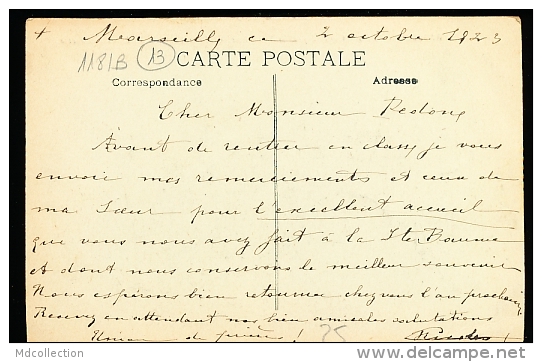 + Marseille, ce 2 octobre 1923
1181B (13) CARTE POSTALE
Correspondance Adresse
Cher Monsieur
Avant de rentrer en classe, je vous
envoie mes remerciements et ceux de
ma Sœur pour l'excellent accueil
que vous nous avez fait à la Ste Baume
et dont nous conservons le meilleur souvenir
Nous espérons bien retourner chez vous l'an prochain,
Recevez en attendant nos bien amicales salutations
Union de prières!
25
Mdcollection
delcampe.net